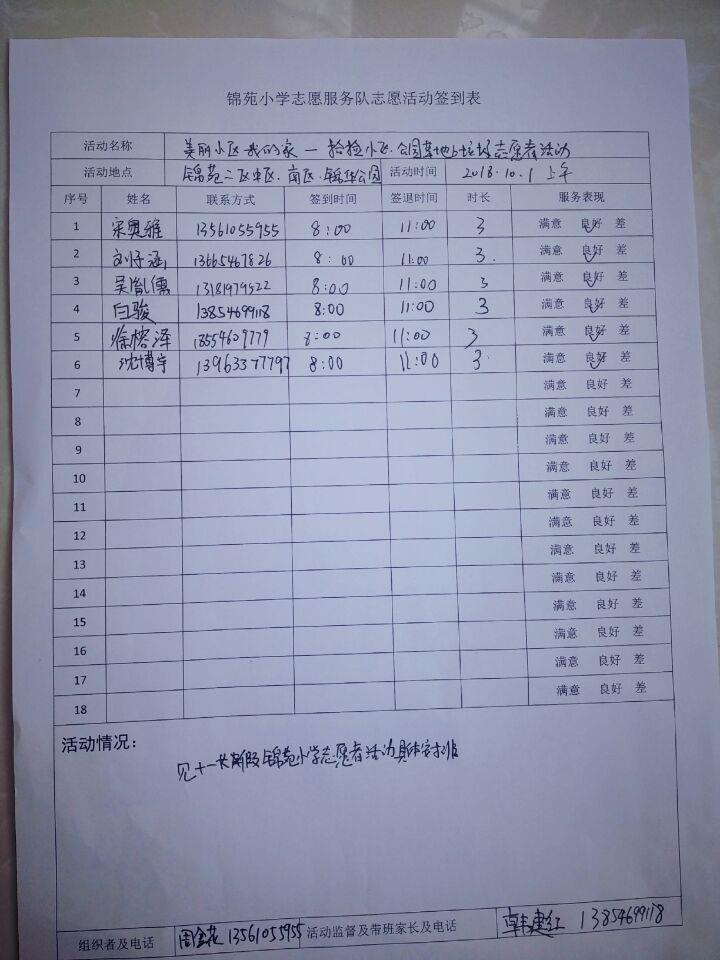 锦苑小学志愿服务队志愿活动签到表
活动名称 美丽小区我的家一捡捡小区.公园草地上垃圾志愿者活动
活动地点 锦苑二区中区.南区.锦华公园 活动时间 2018.10.1 上午
序号 姓名 联系方式 签到时间 签退时间 时长 服务表现
1 宋奥雅 13561055955 8:00 11:00 3 满意 良好 差
2 刘子涵 13665467826 8:00 11:00 3. 满意 良好 差
3 吴胤儒 13181979522 8:00 11:00 3 满意 良好 差
4 白骏 13854699118 8:00 11:00 3 满意 良好 差
5 徐榕泽 18554609779 8:00 11:00 3 满意 良好 差
6 沈博宇 13963377797 8:00 11:00 3. 满意 良好 差
7 满意 良好 差
8 满意 良好 差
9 满意 良好 差
10 满意 良好 差
11 满意 良好 差
12 满意 良好 差
13 满意 良好 差
14 满意 良好 差
15 满意 良好 差
16 满意 良好 差
17 满意 良好 差
18 满意 良好 差
活动情况:
见十一长假锦苑小学志愿者活动具体安排
组织者及电话 周金花 13561055955 活动监督及带班家长及电话 韩建红 13854699118